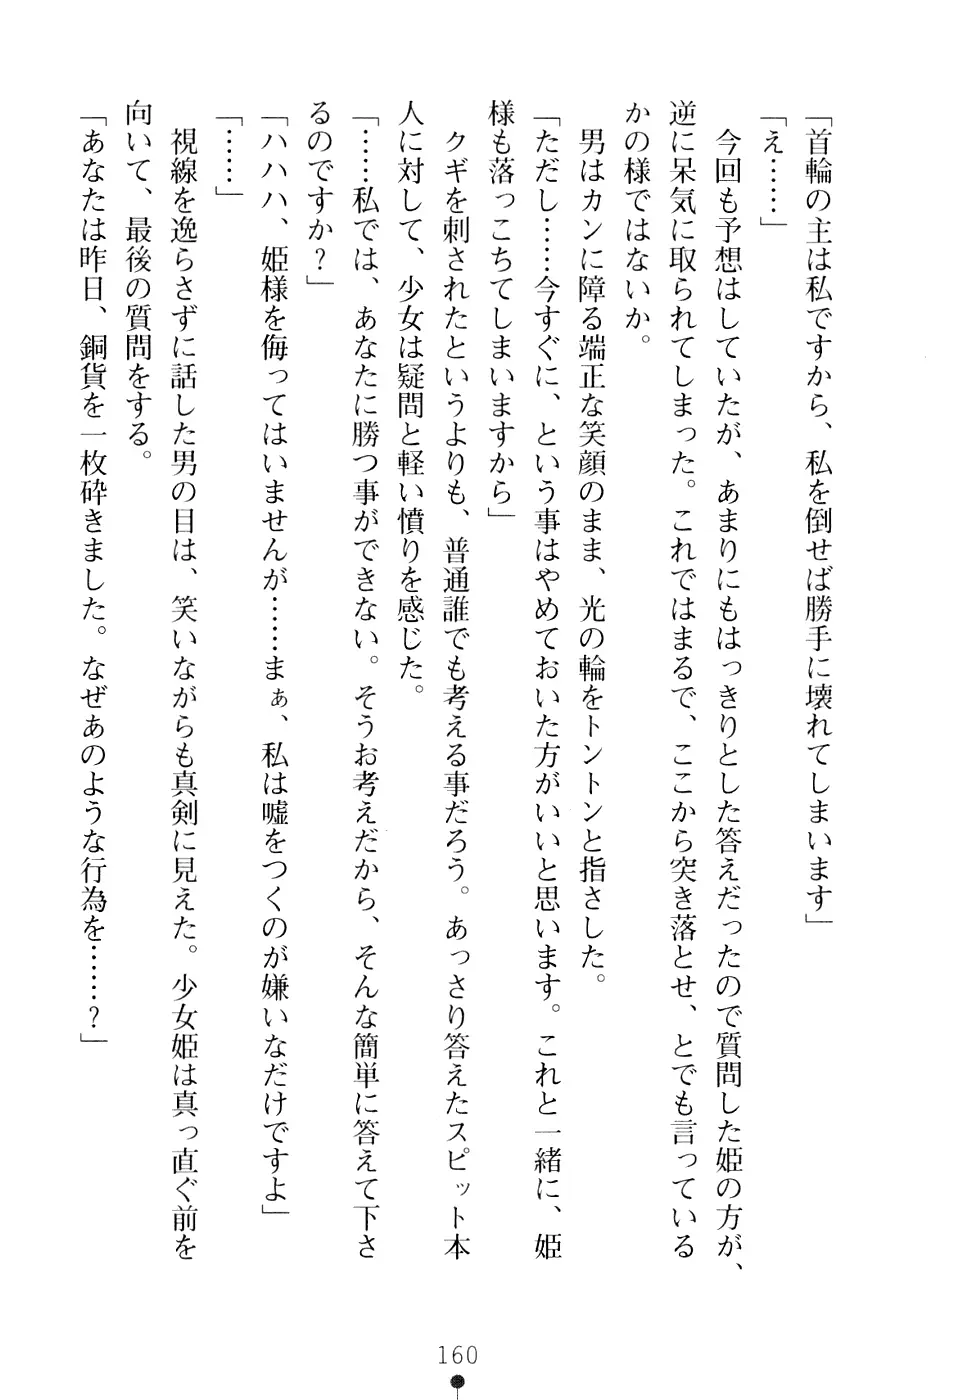 「首輪の主は私ですから、私を倒せば勝手に壊れてしまいます」
「え……」
今回も予想はしていたが、あまりにもはっきりとした答えだったので質問した姫の方が、
逆に呆気に取られてしまった。これではまるで、ここから突き落とせ、とでも言っている
かの様ではないか。
男はカンに障る端正な笑顔のまま、光の輪をトントンと指さした。
「ただし……今すぐに、という事はやめておいた方がいいと思います。これと一緒に、姫
様も落っこちてしまいますから」
クギを刺されたというよりも、普通誰でも考える事だろう。あっさり答えたスピット本
人に対して、少女は疑問と軽い憤りを感じた。
「……私では、あなたに勝つ事ができない。そうお考えだから、そんな簡単に答えて下さ
るのですか？」
「ハハハ、姫様を侮ってはいませんが……まぁ、私は嘘をつくのが嫌いなだけですよ」
「……」
視線を逸らさずに話した男の目は、笑いながらも真剣に見えた。少女姫は真っ直ぐ前を
向いて、最後の質問をする。
「あなたは昨日、銅貨を一枚砕きました。なぜあのような行為を……？」
160